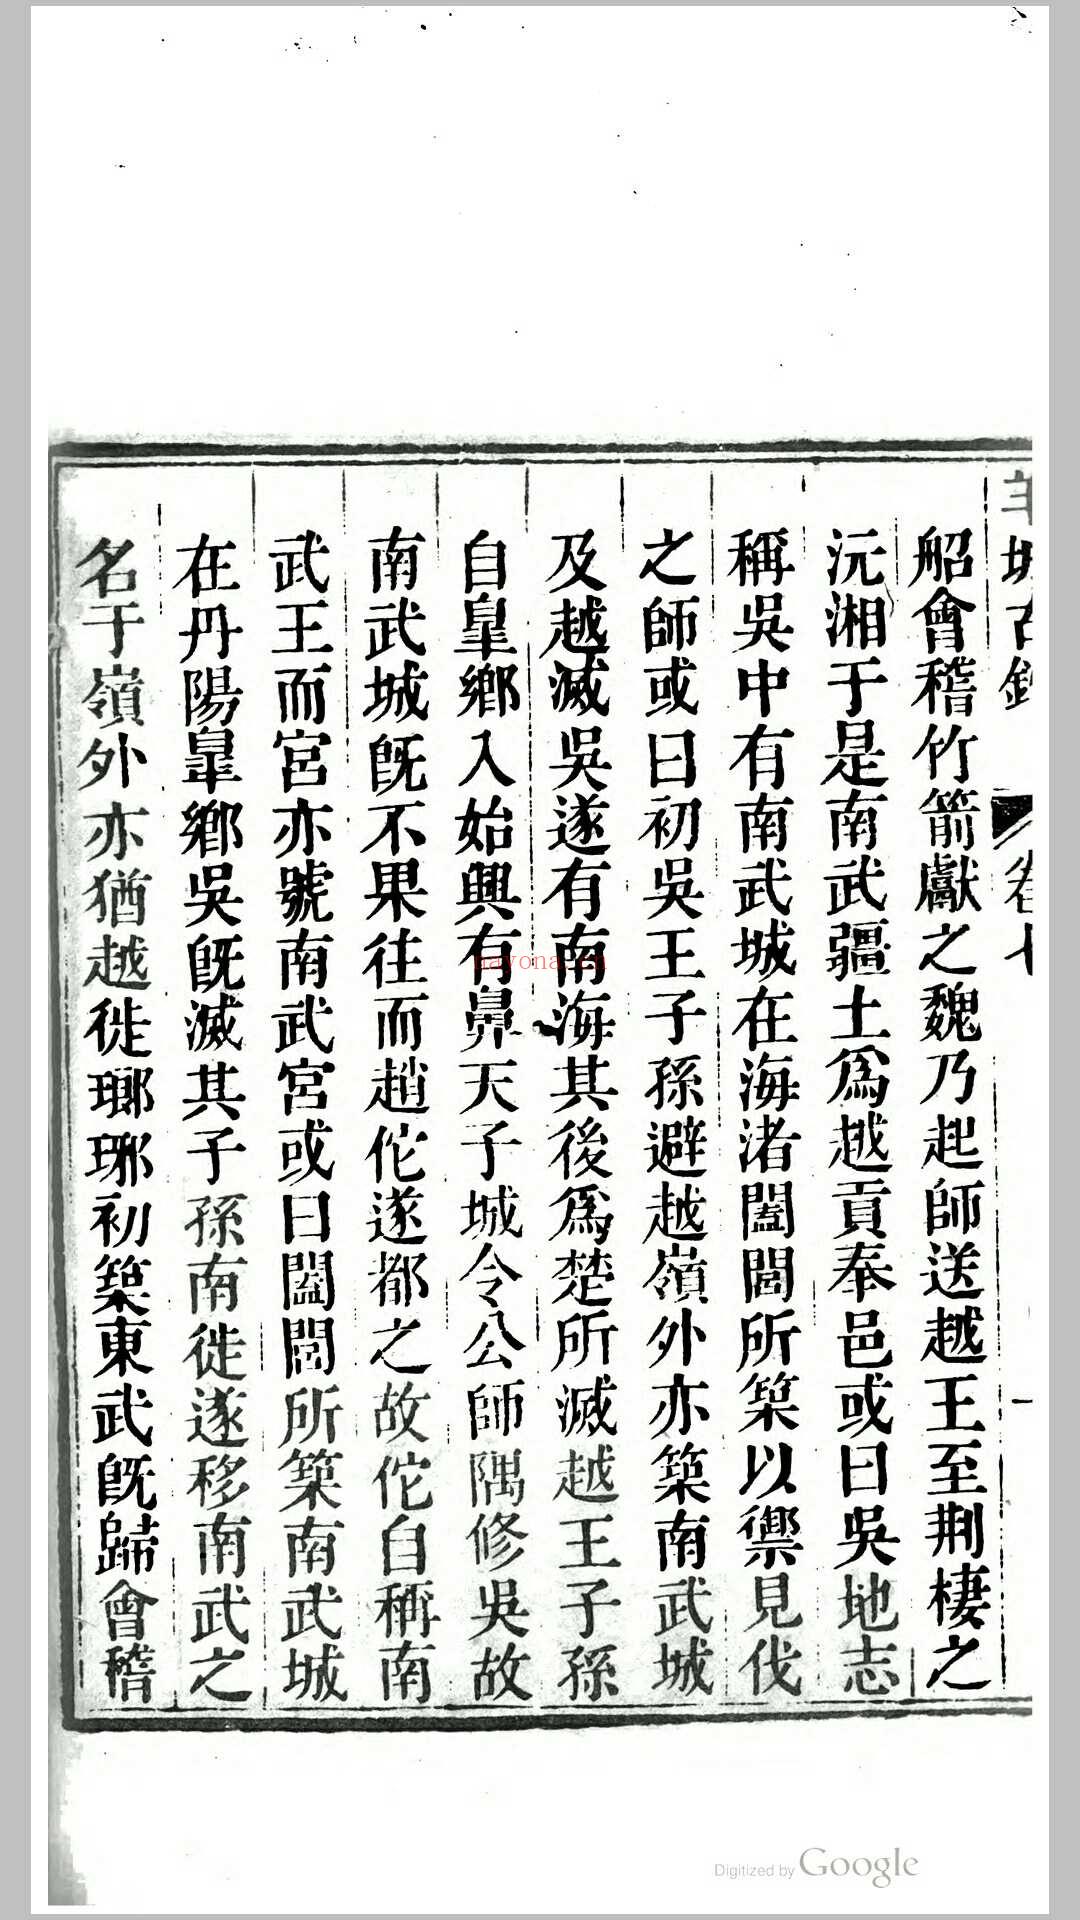 羊城古鈔 卷七 一
船會稽竹箭獻之魏乃起師送越王至荆棲之
沅湘于是南武疆土爲越貢奉邑或曰吳地志
稱吳中有南武城在海渚闔閭所築以禦見伐
之師或曰初吳王子孫避越嶺外亦築南武城
及越滅吳遂有南海其後爲楚所滅越王子孫
自臯鄉入始興有鼻天子城令公師隅修吳故
南武城旣不果往而趙佗遂都之故佗自稱南
武王而宮亦號南武宮或曰闔閭所築南武城
在丹陽臯鄉吳旣滅其子孫南徙遂移南武之
名于嶺外亦猶越徙瑯琊初築東武旣歸會稽
nayona.cn
Digitized by Google